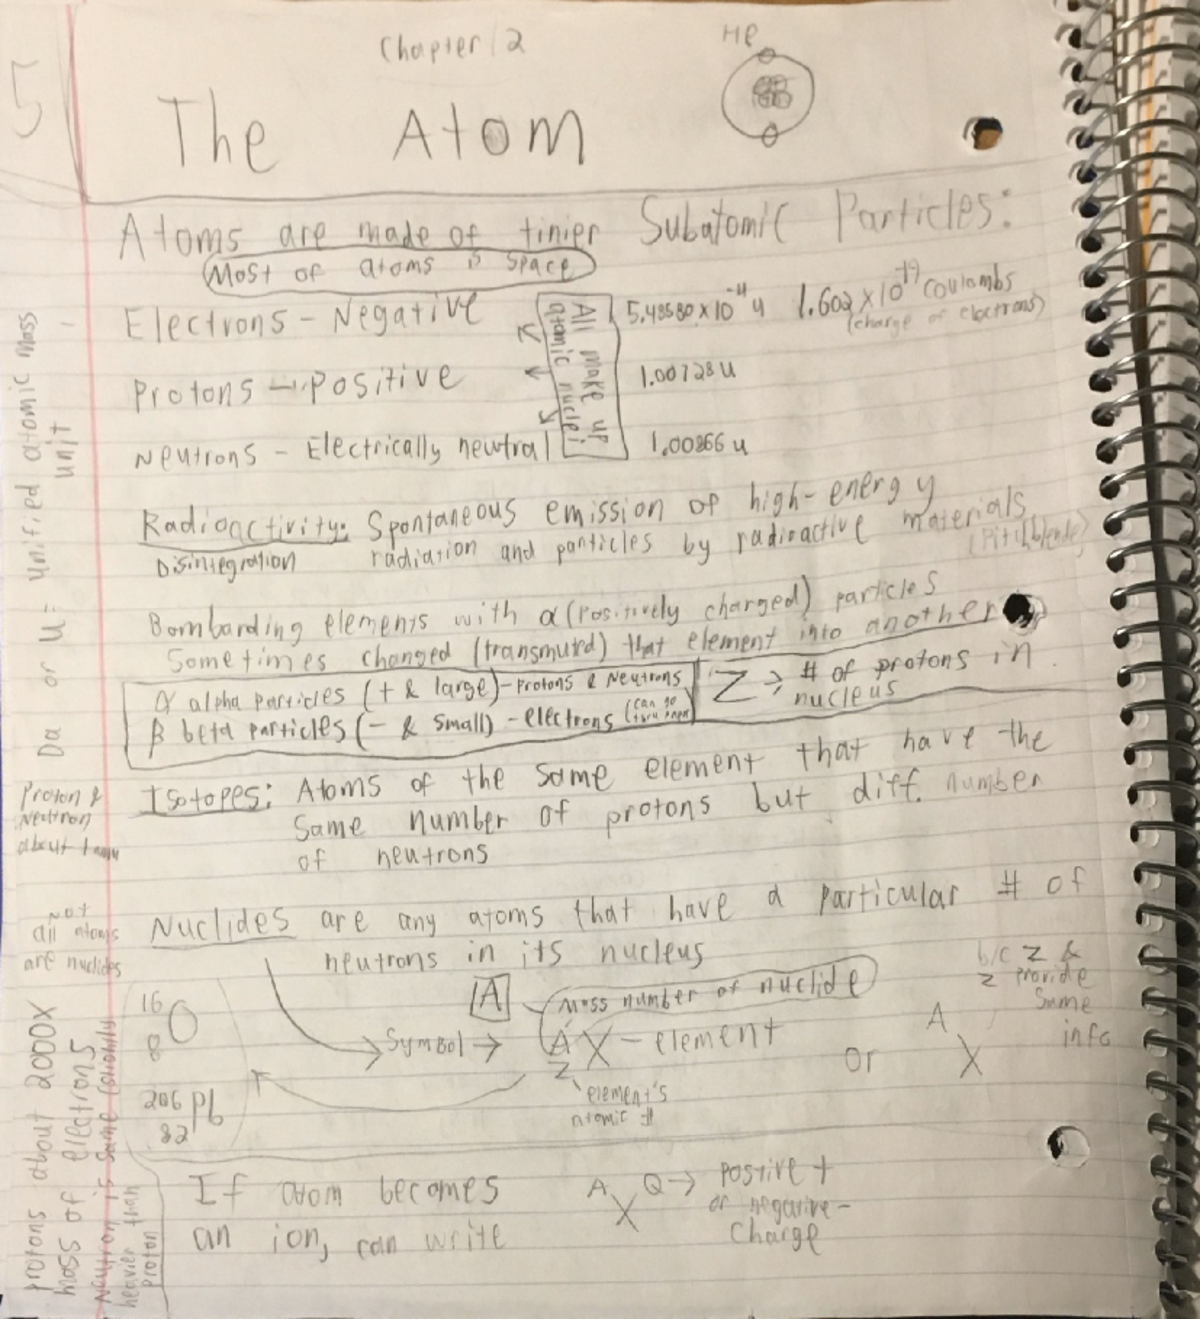 5
Chapter 2
He
The Atom
Atoms are made of tinier Subatomic Particles:
Most of atoms is space
Electrons - Negative
5.48580 x 10⁻⁴ u 1.602 x 10⁻¹⁹ coulombs
(charge of electrons)
Protons → Positive
1.00728 u
Neutrons - Electrically neutral
1.00866 u
All make up
atomic nuclei
Radioactivity: Spontaneous emission of high-energy
Disintegration radiation and particles by radioactive materials
(Pitchblende)
Bombarding elements with α (positively charged) particles
Sometimes changed (transmuted) that element into another
α alpha particles (+ & large) - Protons & Neutrons
β beta particles (- & small) - electrons (can go thru paper)
Z → # of protons in
nucleus
Isotopes: Atoms of the same element that have the
same number of protons but diff. number
of neutrons
Nuclides are any atoms that have a particular # of
neutrons in its nucleus
b/c Z &
Z provide
same
info
A Mass number of nuclide
Symbol → A X - element
Z
element's
atomic #
or A X
16
O
8
206 Pb
82
If atom becomes
an ion, can write
A X Q → postive +
or negative -
charge
Da or u = unified atomic mass
unit
Proton &
Neutron
about
not
all atoms
are nuclides
protons about 2000X
mass of electrons
Neutron is same (slightly
heavier than
proton